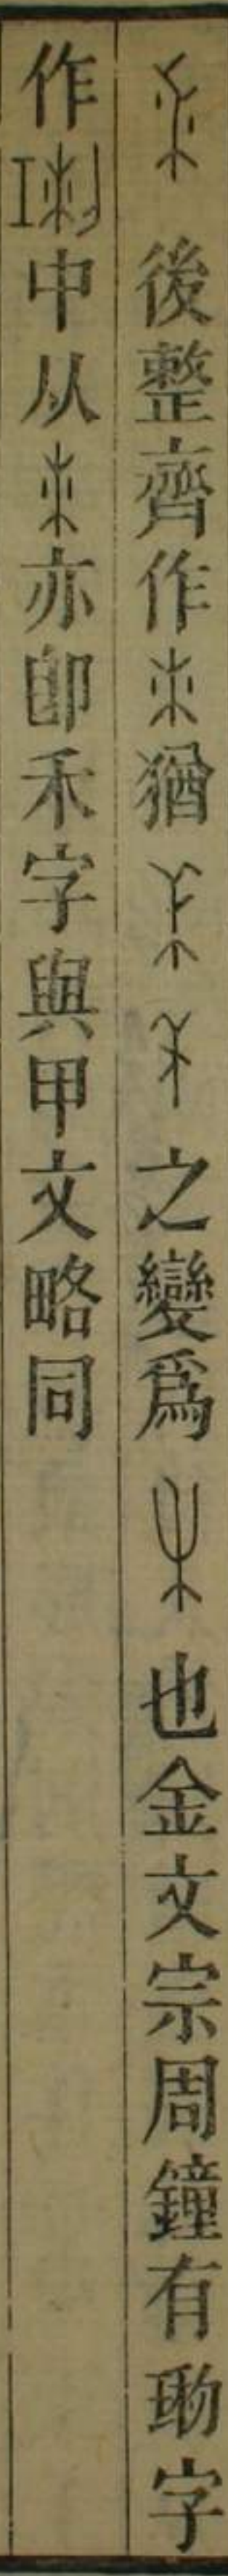 後整齊作猶之變爲也金文宗周鐘有字
作中从亦卽禾字與甲文略同